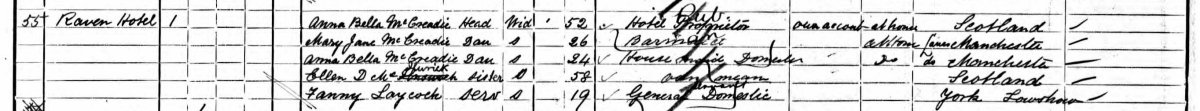 55 Raven Hotel 1 Anna Bella McCreadie Head Wid 52 Hotel Proprietor own account at home Scotland
Mary Jane McCreadie Dau S 26 Barmaid at home Lancs Manchester
Anna Bella McCreadie Dau S 24 House maid Domestic Do do Manchester
Ellen D Mc Sister S 58 own means Scotland
Fanny Laycock Serv S 19 General Domestic York